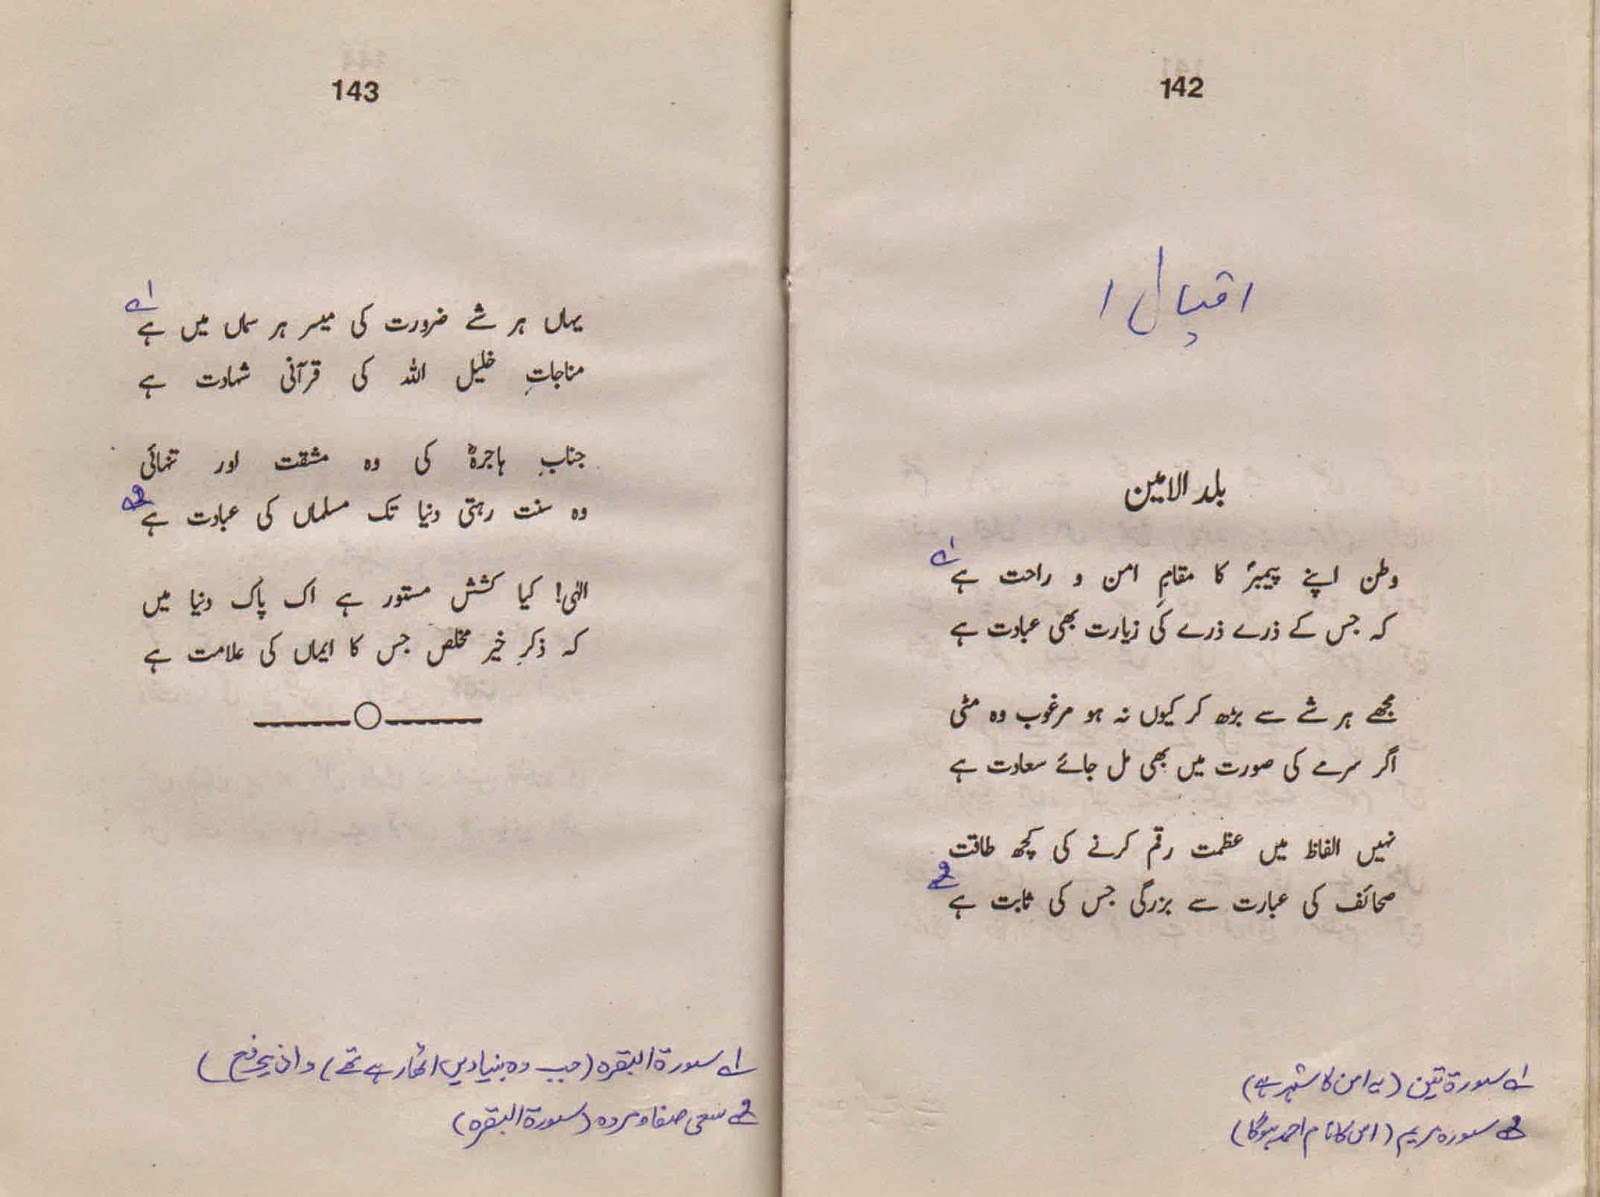 142
اقبال ۱
بلد الامین
وطن اپنے پیمبرؐ کا مقامِ امن و راحت ہے ۱ے
کہ جس کے ذرے ذرے کی زیارت بھی عبادت ہے
مجھے ہر شے سے بڑھ کر کیوں نہ ہو مرغوب وہ مٹی
اگر سرمے کی صورت میں بھی مل جائے سعادت ہے
نہیں الفاظ میں عظمت رقم کرنے کی کچھ طاقت
صحائف کی عبارت سے بزرگی جس کی ثابت ہے ۲ے
۱ے سورۃ تین (یہ امن کا شہر ہے)
۲ے سورہ مریم (اس کا نام احمد ہوگا)
143
یہاں ہر شے ضرورت کی میسر ہر سماں میں ہے ۱ے
مناجاتِ خلیل اللہ کی قرآنی شہادت ہے
جنابِ ہاجرہؑ کی وہ مشقت اور تنہائی
وہ سنت رہتی دنیا تک مسلماں کی عبادت ہے ۲ے
الٰہی! کیا کشش مستور ہے اک پاک دنیا میں
کہ ذکرِ خیر مخلص جس کا ایماں کی علامت ہے
۱ے سورۃ البقرہ (جب وہ بنیادیں اٹھا رہے تھے)
۲ے سعی صفا و مروہ (سورۃ البقرہ)